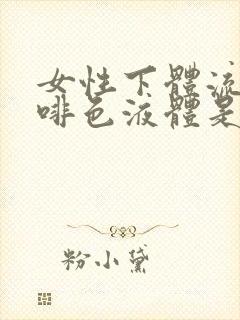 女性下體流
啡色液體是
粉小黛